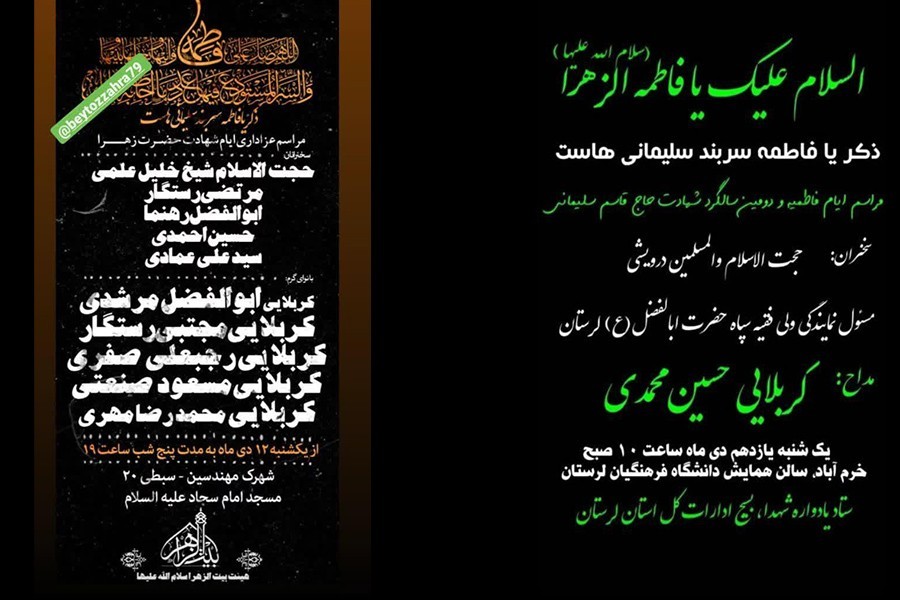 فاطمه
اللهم صل علی فاطمة و ابیها و بعلها و بنیها
والسر المستودع فیها بعدد ما احاط به علمک
@beytozzahra79
ذکر یا فاطمه سربند سلیمانی هاست
مراسم عزاداری ایام شهادت حضرت زهرا
سخنرانان:
حجت الاسلام شیخ خلیل علمی
مرتضی رستگار
ابوالفضل رهنما
حسین احمدی
سید علی عمادی
بانوای گرم:
کربلایی ابوالفضل مرشدی
کربلایی مجتبی رستگار
کربلایی رجبعلی صفری
کربلایی مسعود صنعتی
کربلایی محمدرضا مهری
از یکشنبه ۱۲ دی ماه به مدت پنج شب ساعت ۱۹
شهرک مهندسین - سبطی ۲۰
مسجد امام سجاد علیه السلام
بیت الزهرا
هیئت بیت الزهرا سلام الله علیها
السلام علیک یا فاطمه الزهرا (سلام الله علیها)
ذکر یا فاطمه سربند سلیمانی هاست
مراسم ایام فاطمیه و دومین سالگرد شهادت حاج قاسم سلیمانی
سخنران: حجت الاسلام والمسلمین درویشی
مسئول نمایندگی ولی فقیه سپاه حضرت ابالفضل (ع) لرستان
مداح: کربلایی حسین محمدی
یک شنبه یازدهم دی ماه ساعت ۱۰ صبح
خرم آباد، سالن همایش دانشگاه فرهنگیان لرستان
ستاد یادواره شهدا، بسیج ادارات کل استان لرستان